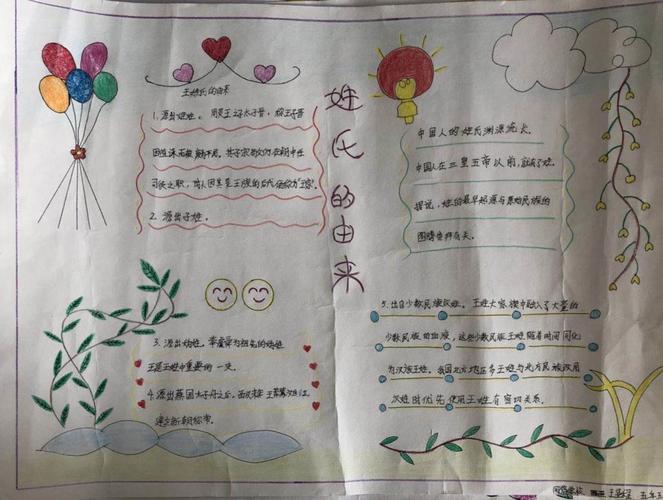 姓氏的由来
王姓氏的由来
1.源出姬姓。周灵王子太子晋，称王子晋
因直谏而被废为平民。其子宗敬仍在朝中任
司徒之职，时人因其是王族的后代便称为"王家"。
2.源出子姓。
中国人的姓氏渊源流长。
中国人在三皇五帝以前，就有了姓。
据说，姓的最早起源与原始民族的
图腾崇拜有关。
3.源出妫姓。帝舜
为祖先的妫姓
王是王姓中重要的一支。
4.源出燕国太子丹之后。西汉末年王莽
建立新朝
5.出自少数民族改姓。王姓大家族中融入了大量的
少数民族的血液，这些少数民族王姓随着时间同化
为汉族王姓。我国北方地区多王姓与北方民族改用
汉姓时优先使用王姓有密切关系。